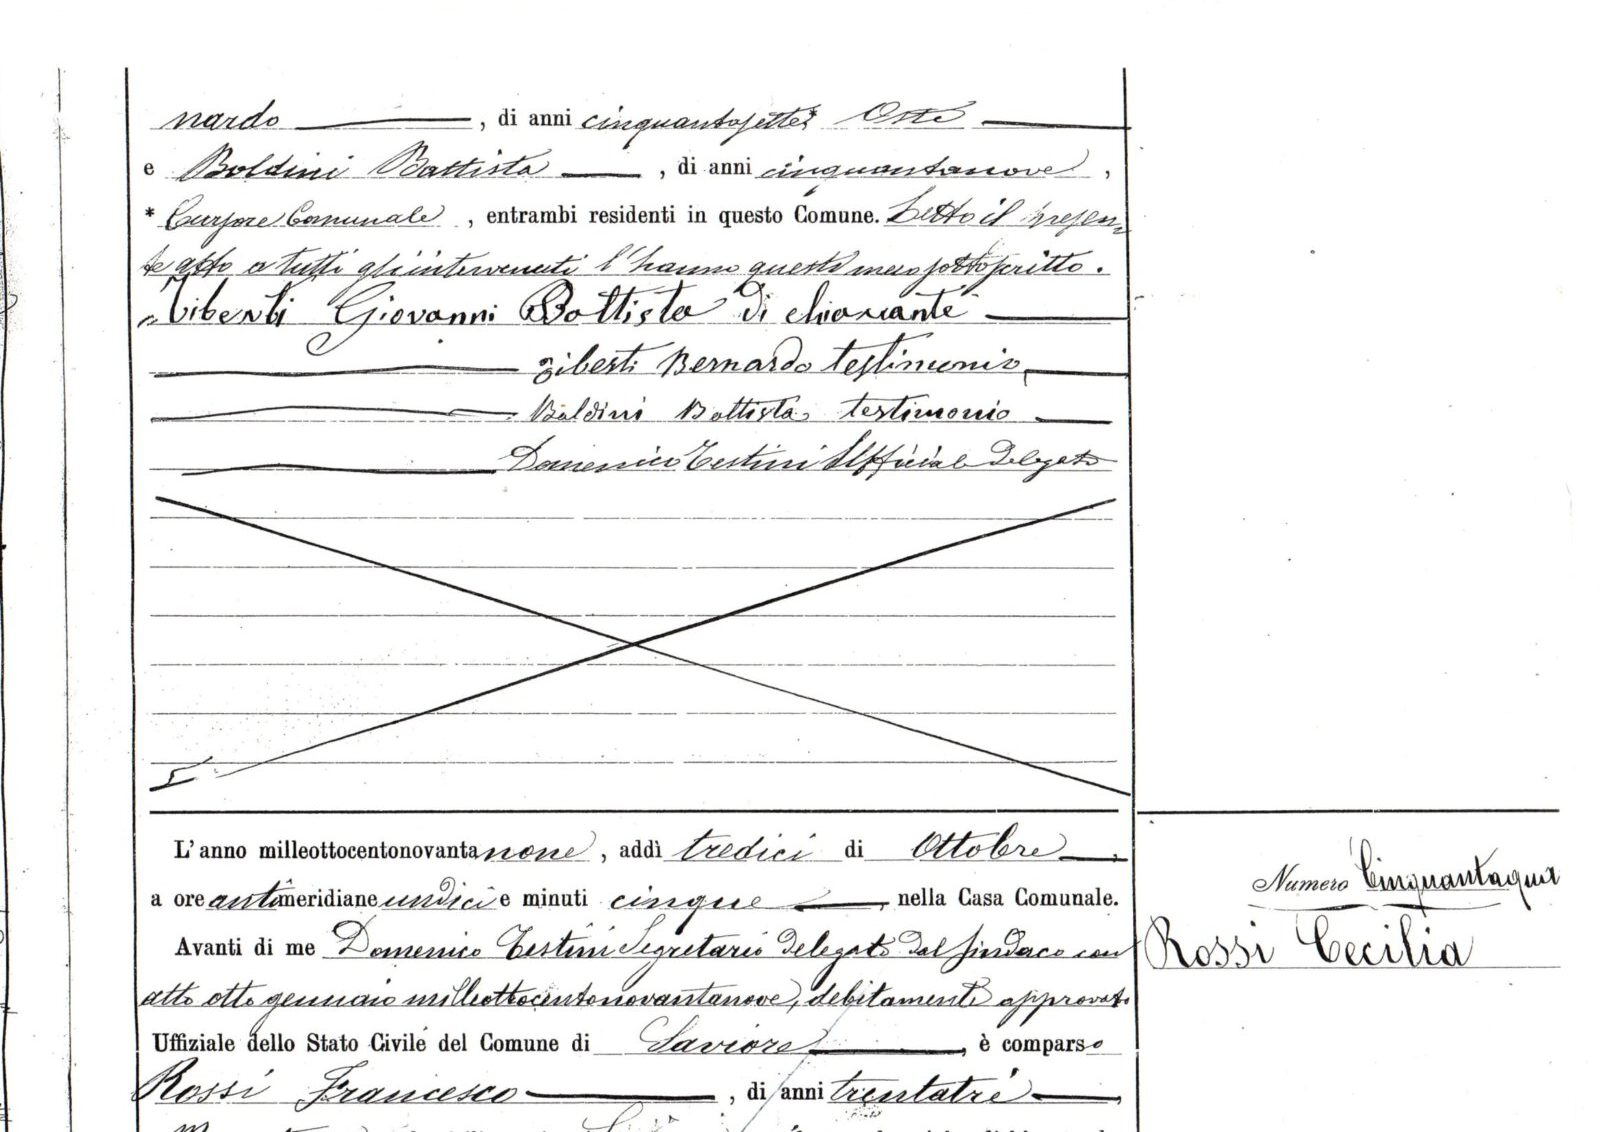 nardo, di anni cinquantasette* Oste
e Boldini Battista, di anni cinquantanove,
* Cursore Comunale, entrambi residenti in questo Comune. Letto il presen
te atto a tutti gli intervenuti l'hanno questi meco sottoscritto.
Tiberti Giovanni Battista di
Ziberti Bernardo testimonio
Boldini Battista testimonio
Domenico Testini Ufficiale Delegato
L'anno milleottocentonovantanone, addì tredici di Ottobre,
a ore antimeridiane undici e minuti cinque, nella Casa Comunale.
Numero Cinquantaqua
Rossi Cecilia
Avanti di me Domenico Testini Segretario delegato dal sindaco con
atto otto gennaio milleottocentonovantanove, debitamente approvato
Uffiziale dello Stato Civile del Comune di Saviore, è comparso
Rossi Francesco, di anni trentatrè,